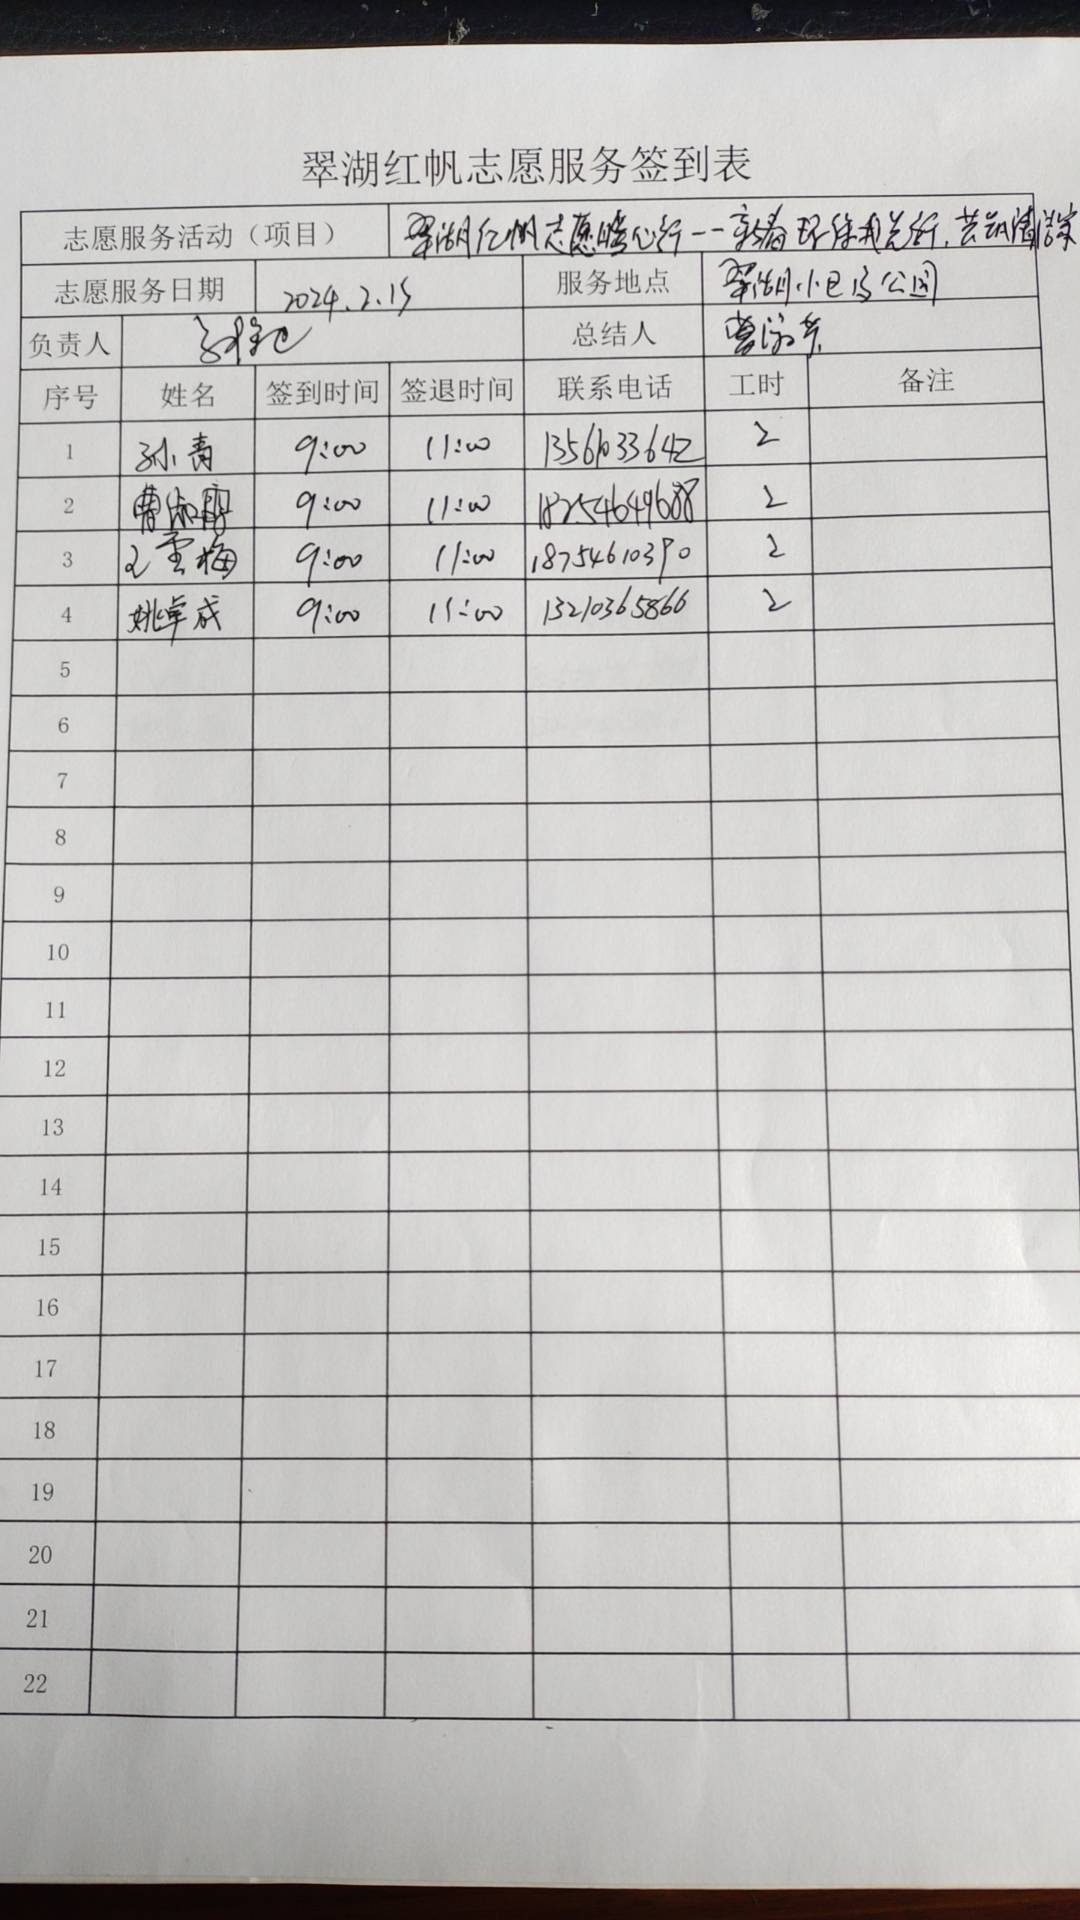 翠湖红帆志愿服务签到表
志愿服务活动（项目） 翠湖红帆志愿暖心行--新春环保我先行,共筑清洁家
志愿服务日期 2024.2.15 服务地点 翠湖小区 公园
负责人 总结人 曹
序号 姓名 签到时间 签退时间 联系电话 工时 备注
1 孙青 9:00 11:00 2
2 曹淑 9:00 11:00 18254649688 2
3 王雪梅 9:00 11:00 18754610390 2
4 姚卓成 9:00 11:00 13210365866 2
5
6
7
8
9
10
11
12
13
14
15
16
17
18
19
20
21
22